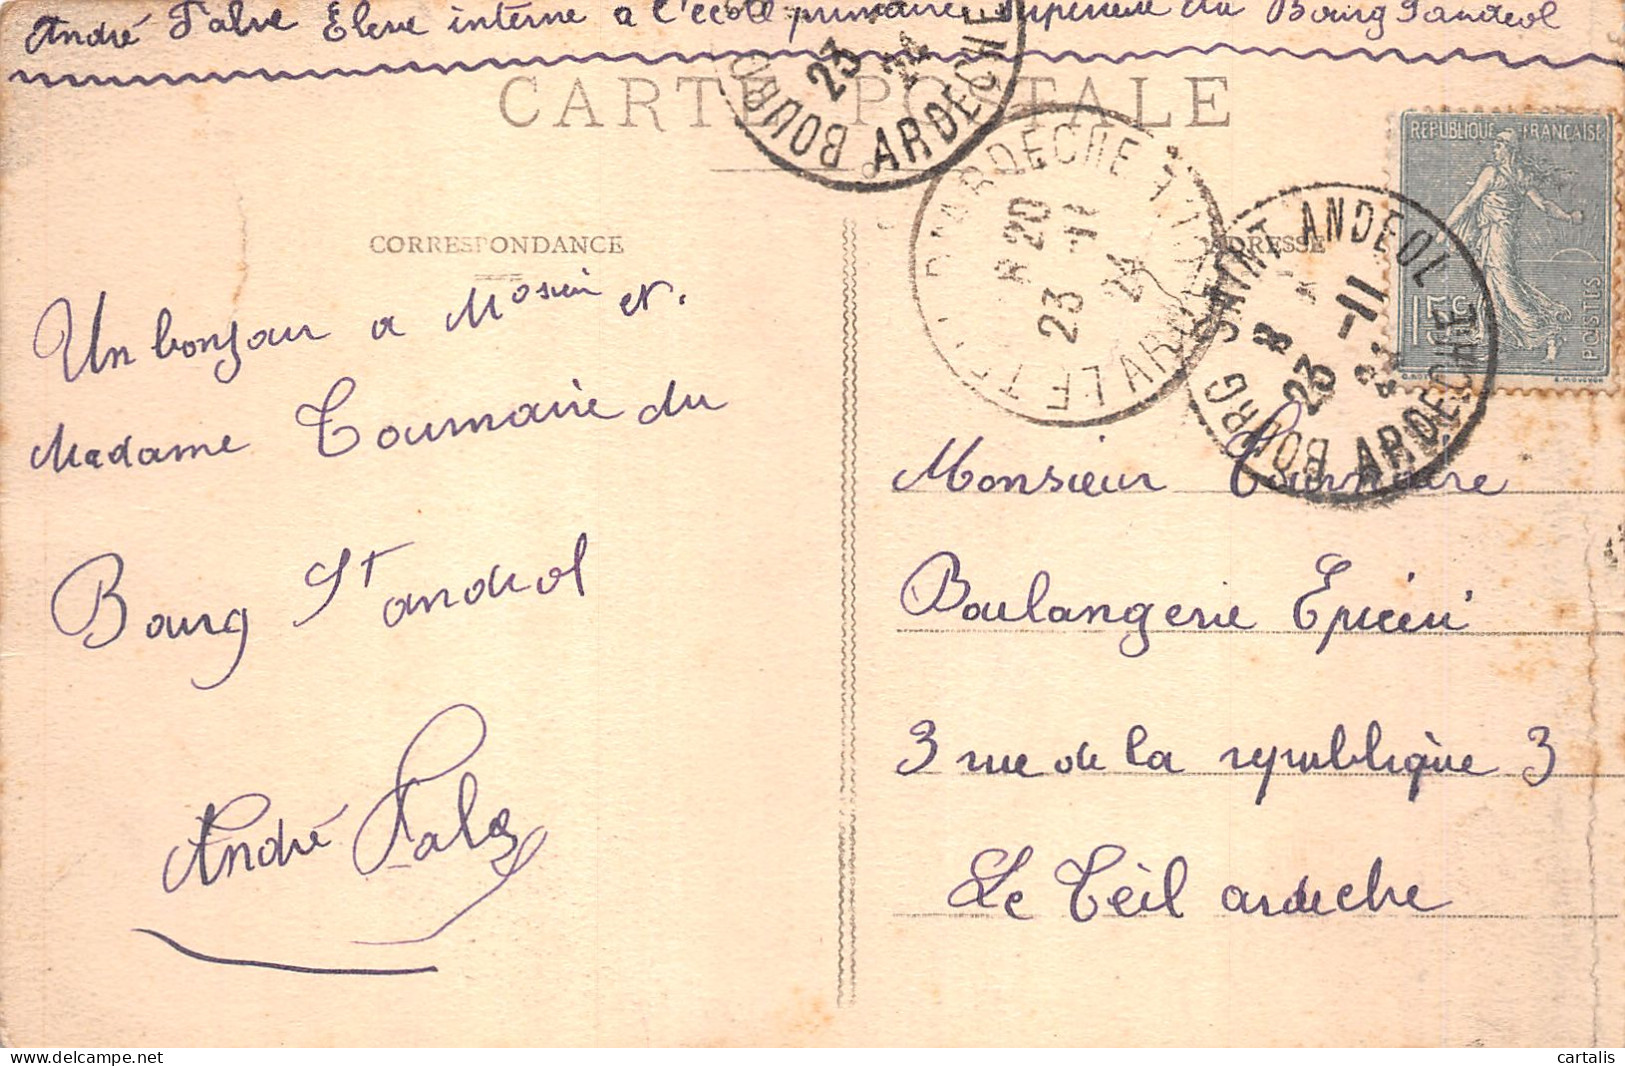 André Falve Eleve interne a l'ecole primaire superieure du Bourg St andeol
CARTE POSTALE
BOURG
ARDECHE
23
24
CORRESPONDANCE
ADRESSE
Un bonjour a Mosieur et.
Madame Tournaire du
Bourg St andeol
André Falve
LE TEIL D'ARDECHE
ARDECHE
20
23 -11
24
BOURG SAINT ANDEOL
ARDECHE
8
23 -11
REPUBLIQUE FRANÇAISE
15c
POSTES
Monsieur Tournaire
Boulangerie Epiceri
3 rue de la republique 3
Le Teil ardeche
delcampe.net
cartalis